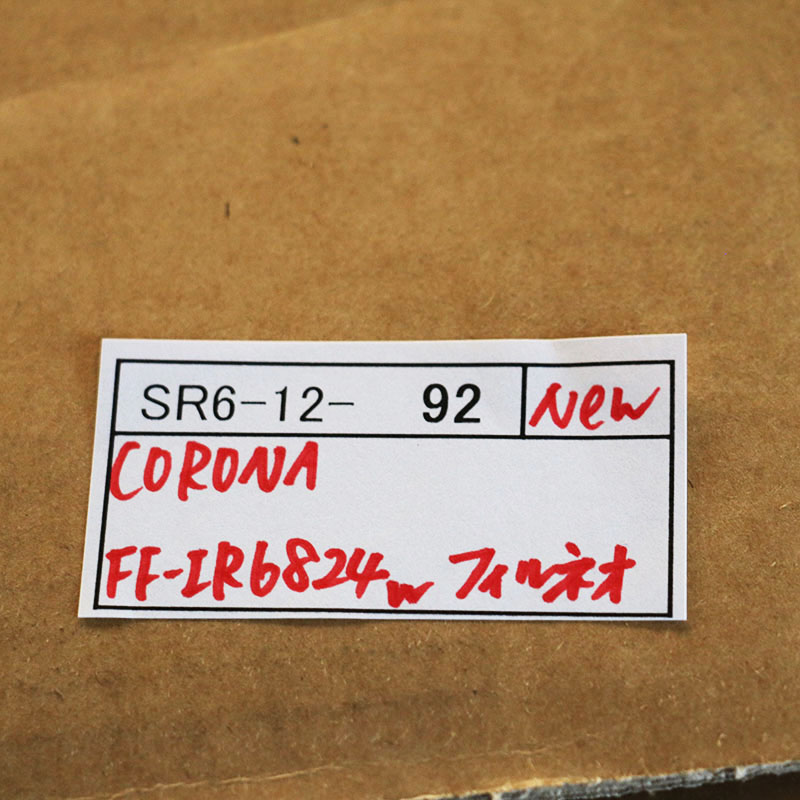 SR6-12- 92 New
CORONA
FF-IR6824w フィルネオ